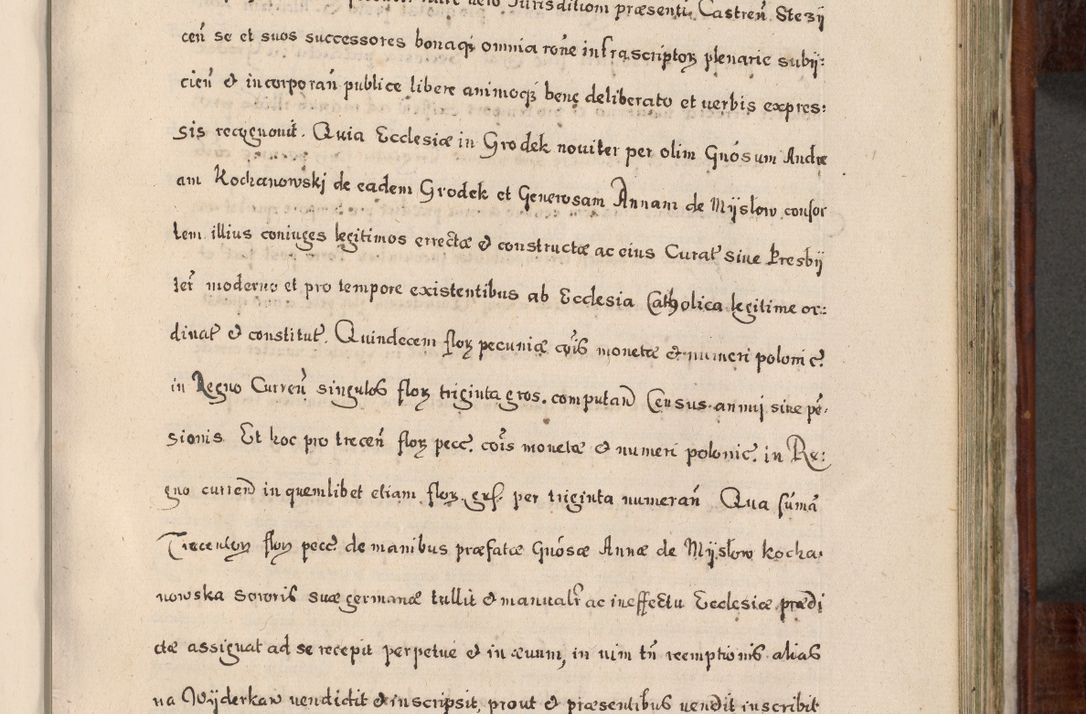 vero Iurisditioni præsenti Castren̄. Stezÿ
cen̄ se et suos successores bonaqꝫ omnia rone̅ infrascriptoꝝ plenarie subÿ:
cien̄ & incorporan̄ publice libere animoqꝫ bene deliberato et uerbis expres:
sis recognouit. Quia Ecclesiæ in Grodek nouiter per olim Gnōsum Andre
am Kochanowskj de eadem Grodek et Generosam Annam de Mÿslow consor
tem illius coniuges legitimos errectæ & constructæ ac eius Curat̄ siue Presbÿ
ter̄ moderno et pro tempore existentibus ab Ecclesia Catholica legitime or:
dinat̄ & constitut̄. Quindecem floꝝ pecuniæ cōis monetæ & numeri polonic̄
in Regno Curren̄ singulos floꝝ triginta gros. computan̄ Census annuj siue pē:
sionis. Et hoc pro trecen̄ floꝝ pecc̄. cōis monetæ & numeri polonic̄. in Re:
gno curren̄ in quemlibet etiam floꝝ gr̄s. per triginta numeran̄ Qua sūmā
Trecentoꝝ floꝝ pecc̄. de manibus præfatæ Gnōsæ Annæ de Mÿslow kocha:
nowska sororis suæ germanæ tullit & manualr̄ ac in effectu Ecclesiæ prædi
ctæ assignat ad se recepit perpetue & in æuum, in uim tn̄ reemptionis alias
na Wÿderkaw uendidit & inscripsit, prout & præsentibus uendit inscribit